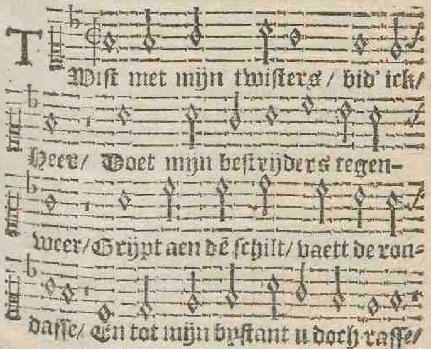 TWist met mijn twisters / bid' ick /
Heer / Doet mijn bestrijders tegen-
weer / Grijpt aen dē schilt / vaett de ron-
dasse / En tot mijn bystant u doch rasse /